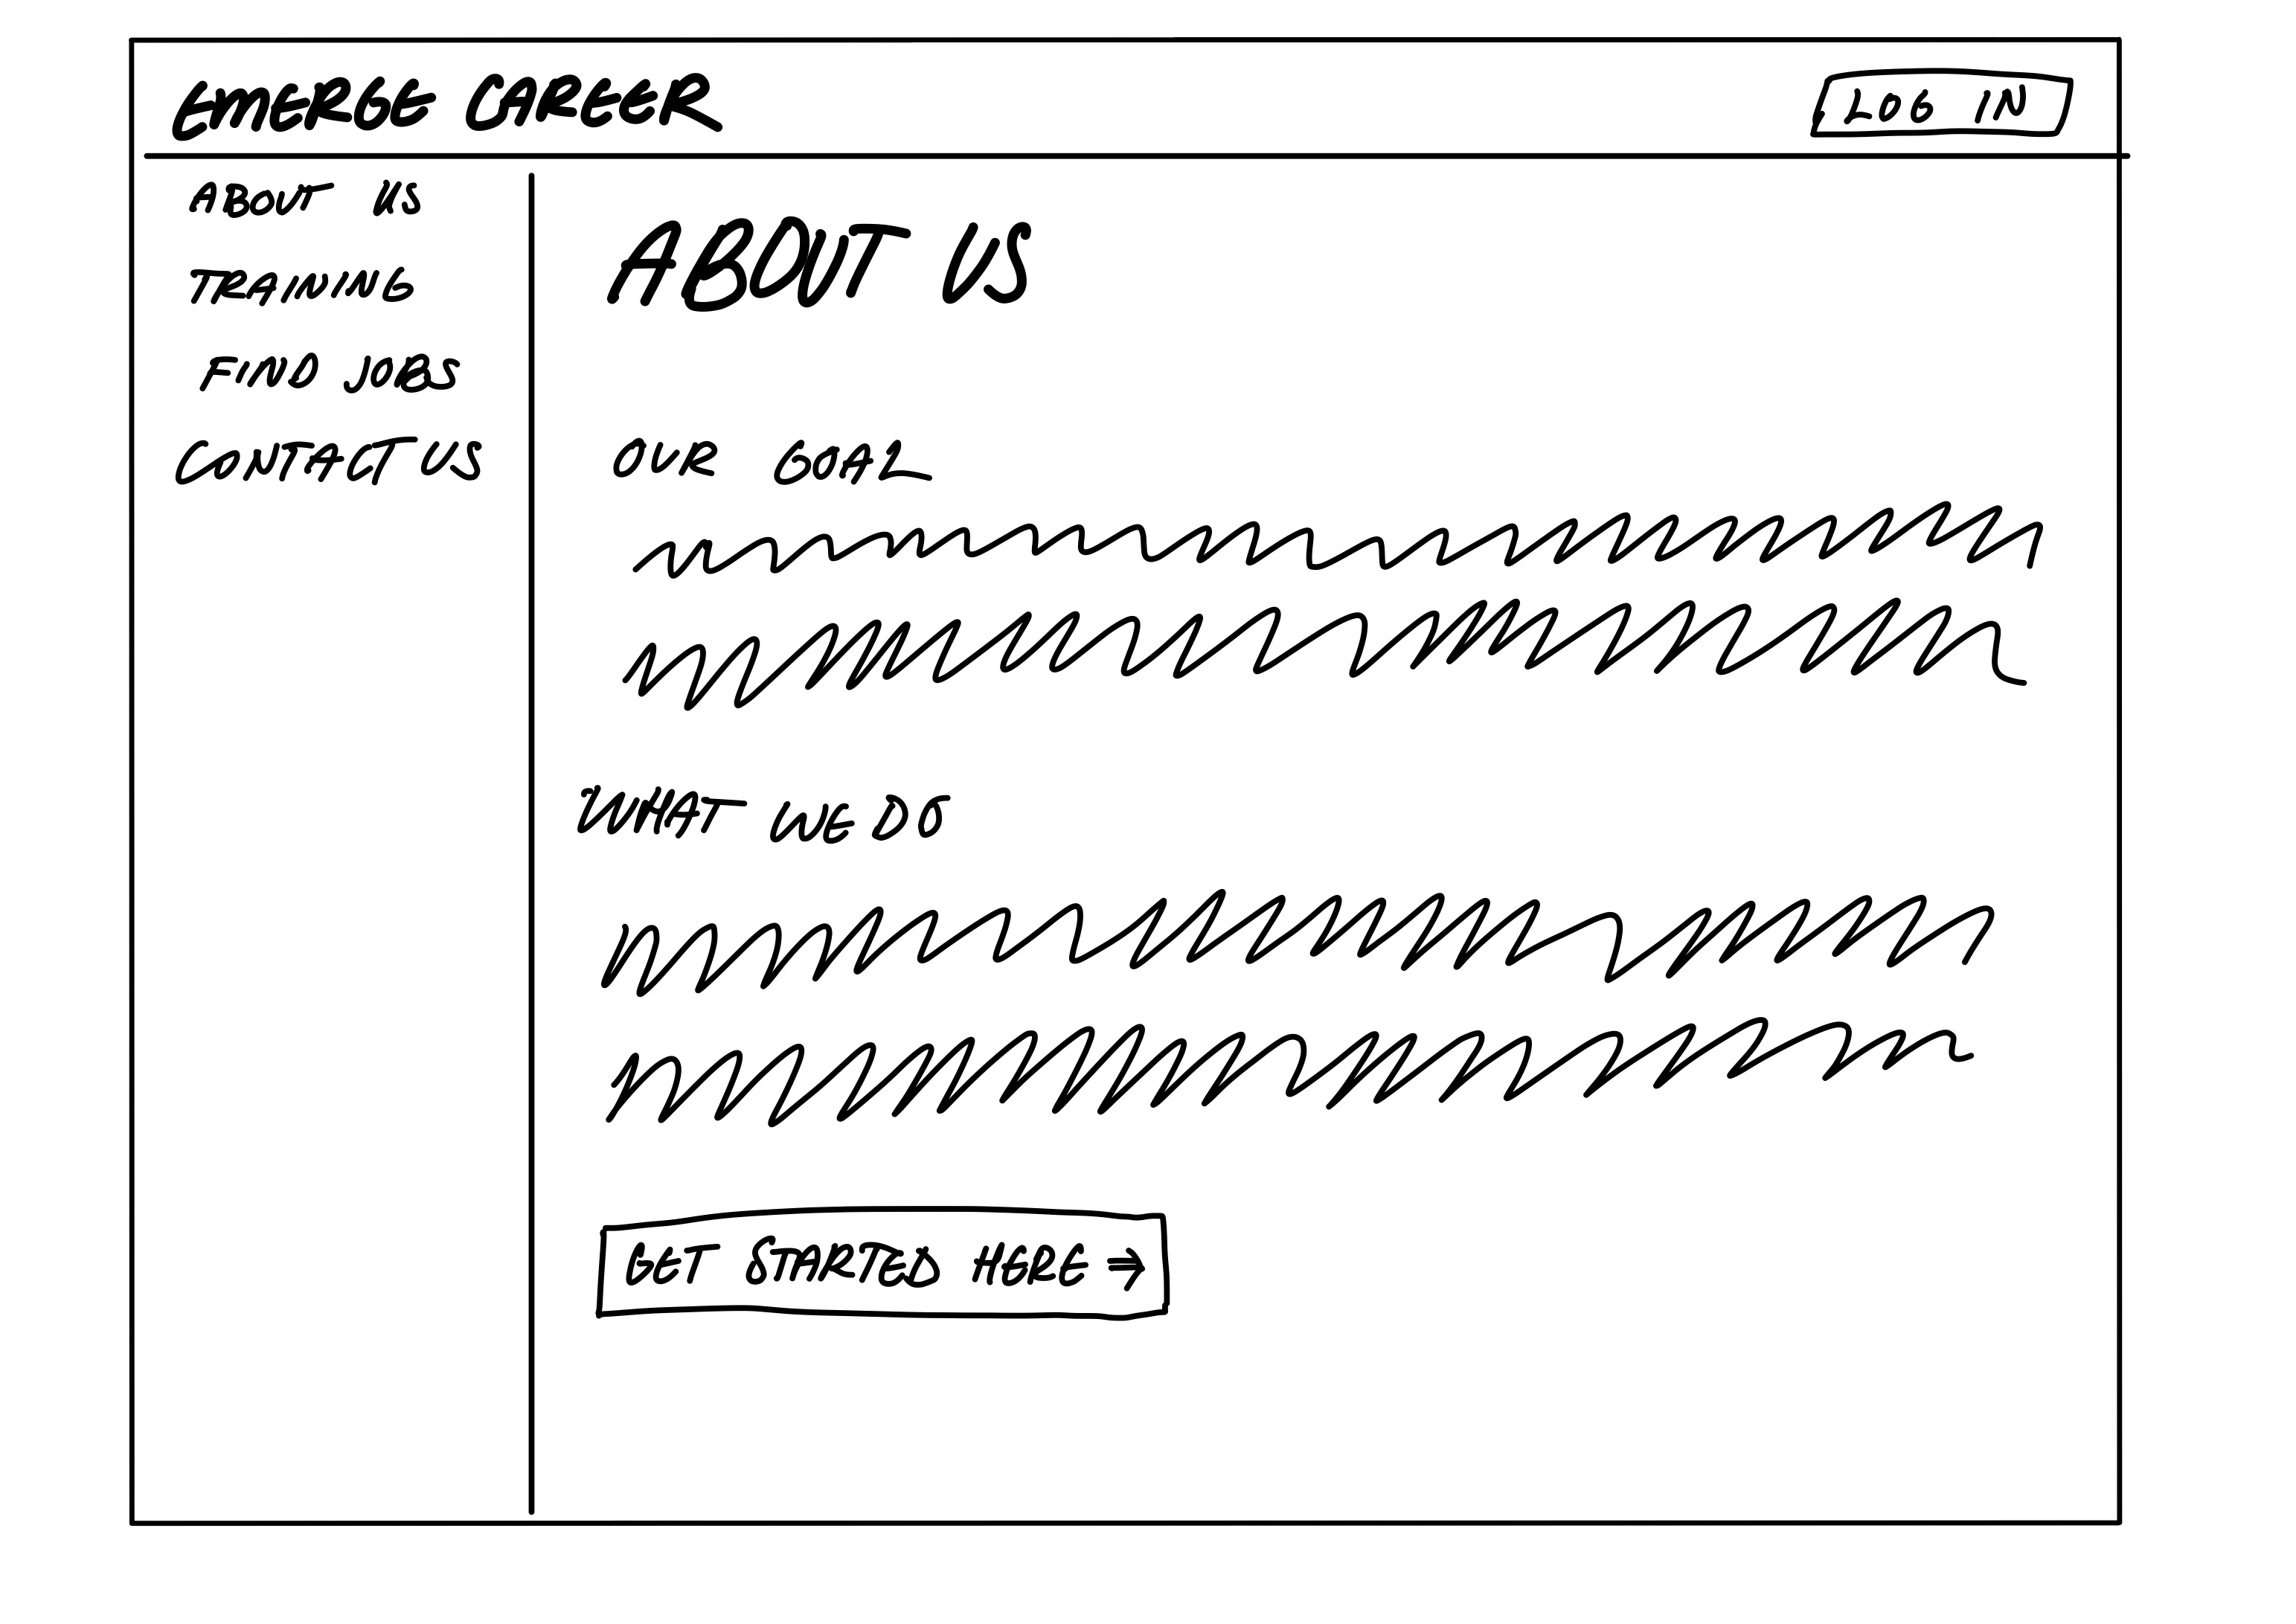 EMERGE CAREER
LOG IN
ABOUT US
TRAINING
FIND JOBS
CONTACT US
ABOUT US
OUR GOAL
WHAT WE DO
GET STARTED HERE →